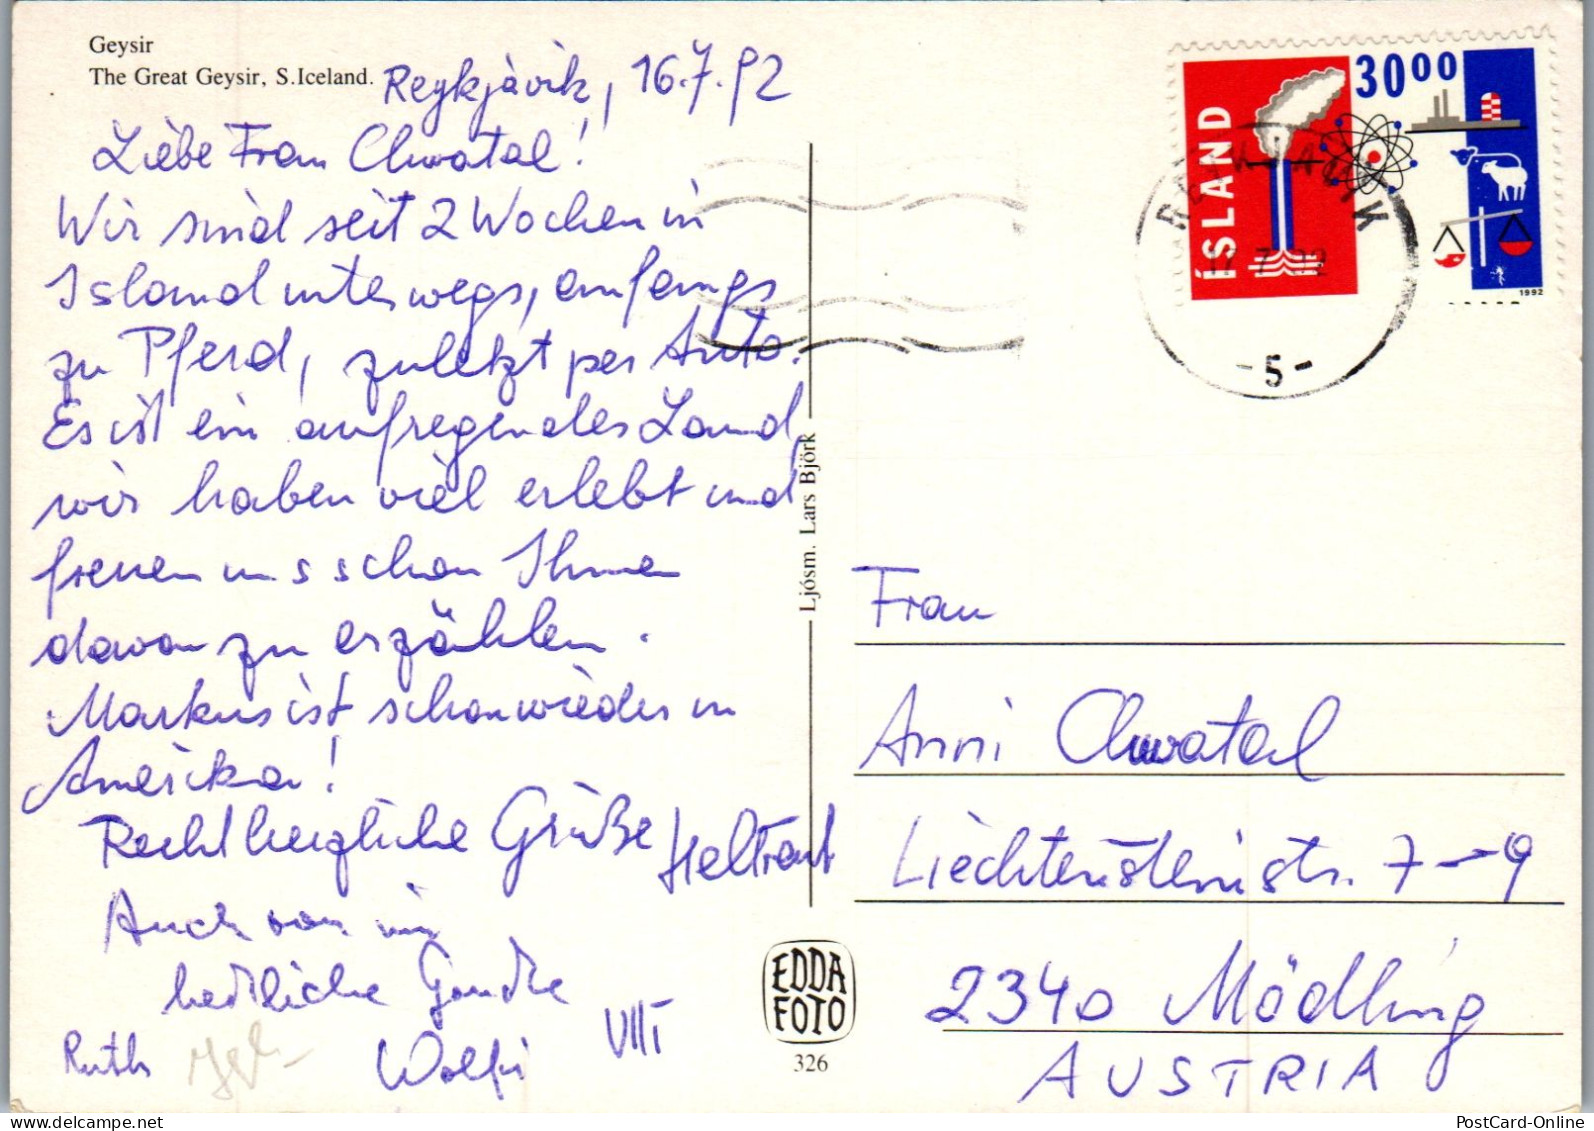 Geysir
The Great Geysir, S.Iceland.
Reykjàvik, 16.7.92
Liebe Frau Chwatal!
Wir sind seit 2 Wochen in
Island unterwegs, anfangs
zu Pferd, zuletzt per Auto.
Es ist ein aufregendes Land,
wir haben viel erlebt und
freuen uns schon Ihnen
davon zu erzählen.
Markus ist schon wieder in
Amerika!
Recht herzliche Grüße Heltraut
Auch von mir
herzliche
Ruth
Wolfi
Ljósm. Lars Björk
EDDA
FOTO
326
ÍSLAND
3000
1992
-5-
Frau
Anni Chwatal
Liechtensteinstr. 7-9
2340 Mödling
AUSTRIA
PostCard-Online